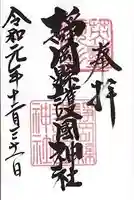 奉拝
静岡縣護國神社
令和元年十二月三十一日